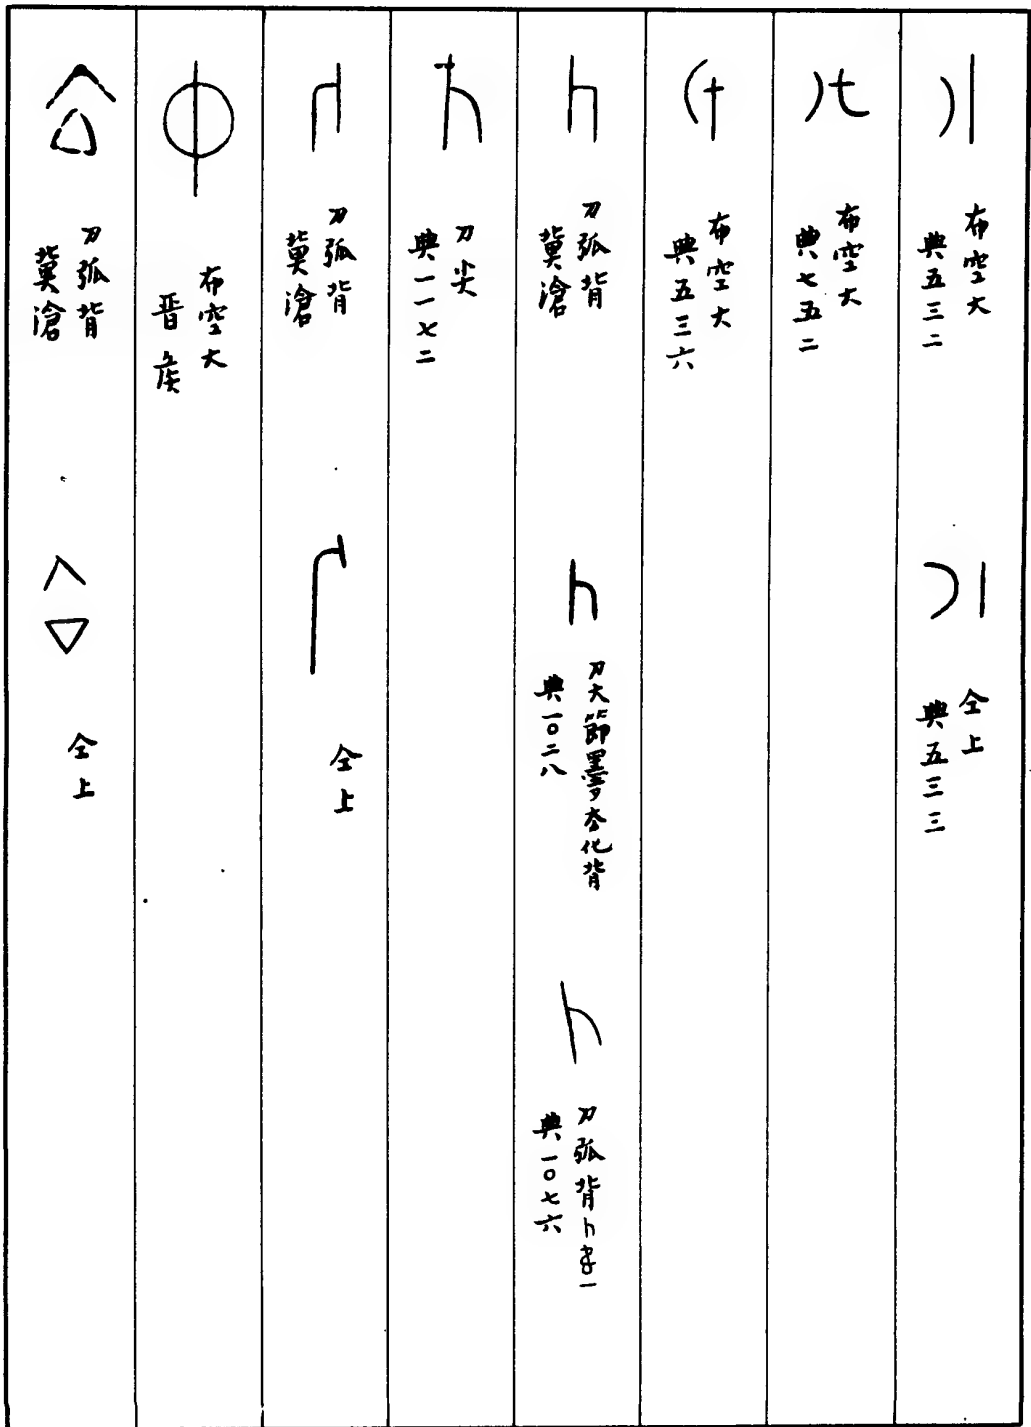 布空大
典五三二
仝上
典五三三
布空大
典七五二
布空大
典五三六
刀弧背
冀滄
刀大節墨之大化背
典一〇二八
刀弧背
典一〇七六
刀尖
典一一七二
刀弧背
冀滄
仝上
布空大
晋侯
刀弧背
冀滄
仝上